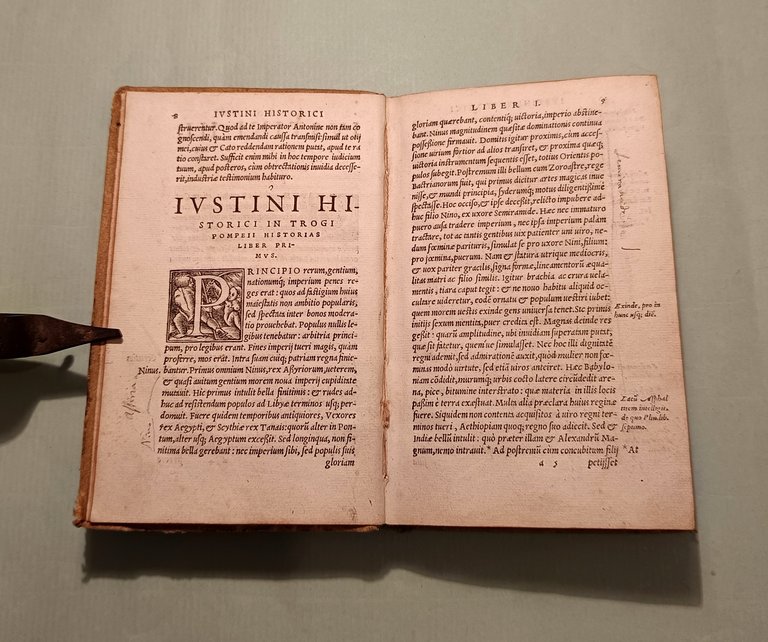 8 IVSTINI HISTORICI
struerentur. Quod ad te Imperator Antonine non tam co
gnoscendi, quàm emendandi caussa transmisi: simul ut otij
mei, cuius & Cato reddendam rationem putat, apud te ra
tio constaret. Sufficit enim mihi in hoc tempore iudicium
tuum, apud posteros, cùm obtrectationis inuidia decesse-
rit, industriæ testimonium habituro.
IVSTINI HI-
STORICI IN TROGI
POMPEII HISTORIAS
LIBER PRI-
MVS.
PRINCIPIO rerum, gentium,
nationumq́; imperium penes re-
ges erat: quos ad fastigium huius
maiestatis non ambitio popularis,
sed spectata inter bonos modera-
tio prouehebat. Populus nullis le-
gibus tenebatur: arbitria princi-
pum, pro legibus erant. Fines imperij tueri magis, quàm
proferre, mos erat. Intra suam cuiq; patriam regna finie-
Ninus. bantur. Primus omnium Ninus, rex Assyriorum, ueterem,
& quasi auitum gentium morem noua imperij cupiditate
mutauit. Hic primus intulit bella finitimis: & rudes ad-
huc ad resistendum populos ad Libyæ terminos usq; per-
domuit. Fuere quidem temporibus antiquiores, Vexores
rex Aegypti, & Scythiæ rex Tanais: quorū alter in Pon-
tum, alter usq; Aegyptum excessit. Sed longinqua, non fi-
nitima bella gerebant: nec imperium sibi, sed populis suis
gloriam
LIBER I. 9
gloriam quærebant, contentiq́; uictoria, imperio abstine-
bant. Ninus magnitudinem quæsitæ dominationis continua
possessione firmauit. Domitis igitur proximis, cùm acces-
sione uirium fortior ad alios transiret, & proxima quæq;
uictoria instrumentum sequentis esset, totius Orientis po-
pulos subegit. Postremum illi bellum cum Zoroastre, rege
Bactrianorum fuit, qui primus dicitur artes magicas inue
nisse, & mundi principia, syderumq́; motus diligentissimè
spectasse. Hoc occiso, & ipse decessit, relicto impubere ad-
huc filio Nino, ex uxore Semiramide. Hæc nec immaturo
puero ausa tradere imperium, nec ipsa imperium palàm
tractare, tot ac tantis gentibus uix patienter uni uiro, ne-
dum fœminæ parituris, simulat se pro uxore Nini, filium:
pro fœmina, puerum. Nam & statura utrique mediocris,
& uox pariter gracilis, signa formæ, lineamentorū æqua-
litas matri ac filio similis. Igitur brachia ac crura uela-
mentis, tiara caput tegit: & ne nouo habitu aliquid oc-
cultare uideretur, eodē ornatu & populum uestiri iubet:
quem morem uestis exinde gens uniuersa tenet. Sic primis
initijs sexum mentita, puer credita est. Magnas deinde res
gessit: quarū amplitudine, ubi inuidiam superatam putat,
quæ sit fatetur, quem'ue simulasset. Nec hoc illi dignitatē
regni ademit, sed admirationē auxit, quòd mulier non fœ-
minas modò uirtute, sed etiā uiros anteiret. Hæc Babylo-
niam cōdidit, murumq́; urbis cocto latere circūdedit are-
na, pice, bitumine interstrato: quæ materia in illis locis
passim è terra exæstuat. Multa alia præclara huius reginæ
fuere. Siquidem non contenta acquisitos à uiro regni ter-
minos tueri, Aethiopiam quoq; regno suo adiecit. Sed &
Indiæ bellū intulit: quò præter illam & Alexandrū Ma-
gnum, nemo intrauit. * Ad postremū cum concubitum filij *At
a 5 petijsset
Exinde, pro in
hunc usq; diē.
Lacū Asphal
titem intelligit,
de quo Plin. lib.
septimo.